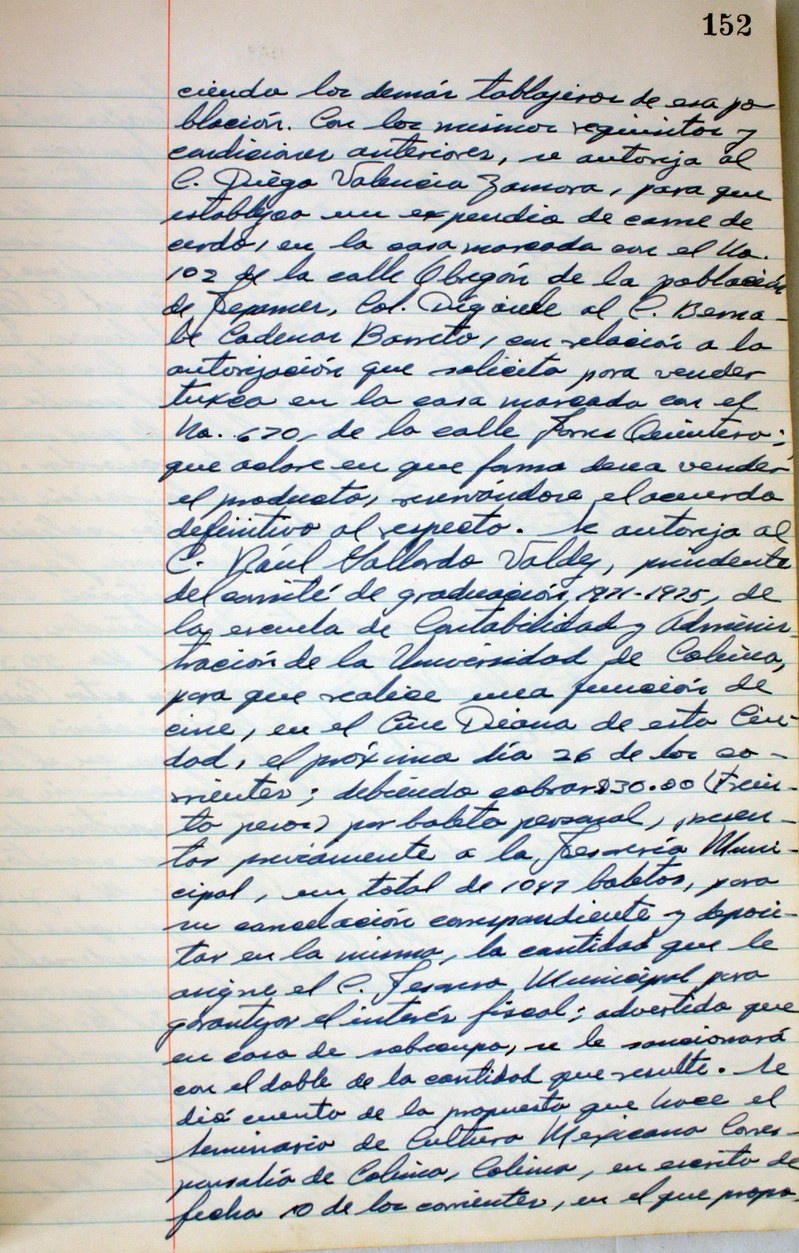 152
ciendo los demás tablajeros de esa po-
blación. Con los mismos requisitos y
condiciones anteriores, se autoriza al
C. Diego Valencia Zamora, para que
establezca un expendio de carne de
cerdo, en la casa marcada con el No.
102 de la calle Obregón de la población
de Tepames, Col. Dígasele al C. Berna-
bé Cadenas Barreto, en relación a la
autorización que solicita para vender
tuxca en la casa marcada con el
No. 670, de la calle Torres Quintero;
que aclare en que forma desea vender
el producto, reservándose el acuerdo
definitivo al respecto. Se autoriza al
C. Raúl Gallardo Valdez, presidente
del comité de graduación 1971-1975, de
la escuela de Contabilidad y Adminis-
tración de la Universidad de Colima,
para que realice una función de
cine, en el Cine Diana de esta Ciu-
dad, el próximo día 26 de los co-
rrientes; debiendo cobrar $30.00 (Trein-
ta pesos) por boleto personal, presen-
tar previamente a la Tesorería Muni-
cipal, un total de 1047 boletos, para
su cancelación correspondiente y deposi-
tar en la misma, la cantidad que le
asigne el C. Tesorero Municipal para
garantizar el interés fiscal; advertido que
en caso de sobrecupo, se le sancionará
con el doble de la cantidad que resulte. Se
dió cuenta de la propuesta que hace el
Seminario de Cultura Mexicana Corres-
ponsalía de Colima, Colima, en escrito de
fecha 10 de los corrientes, en el que propo-